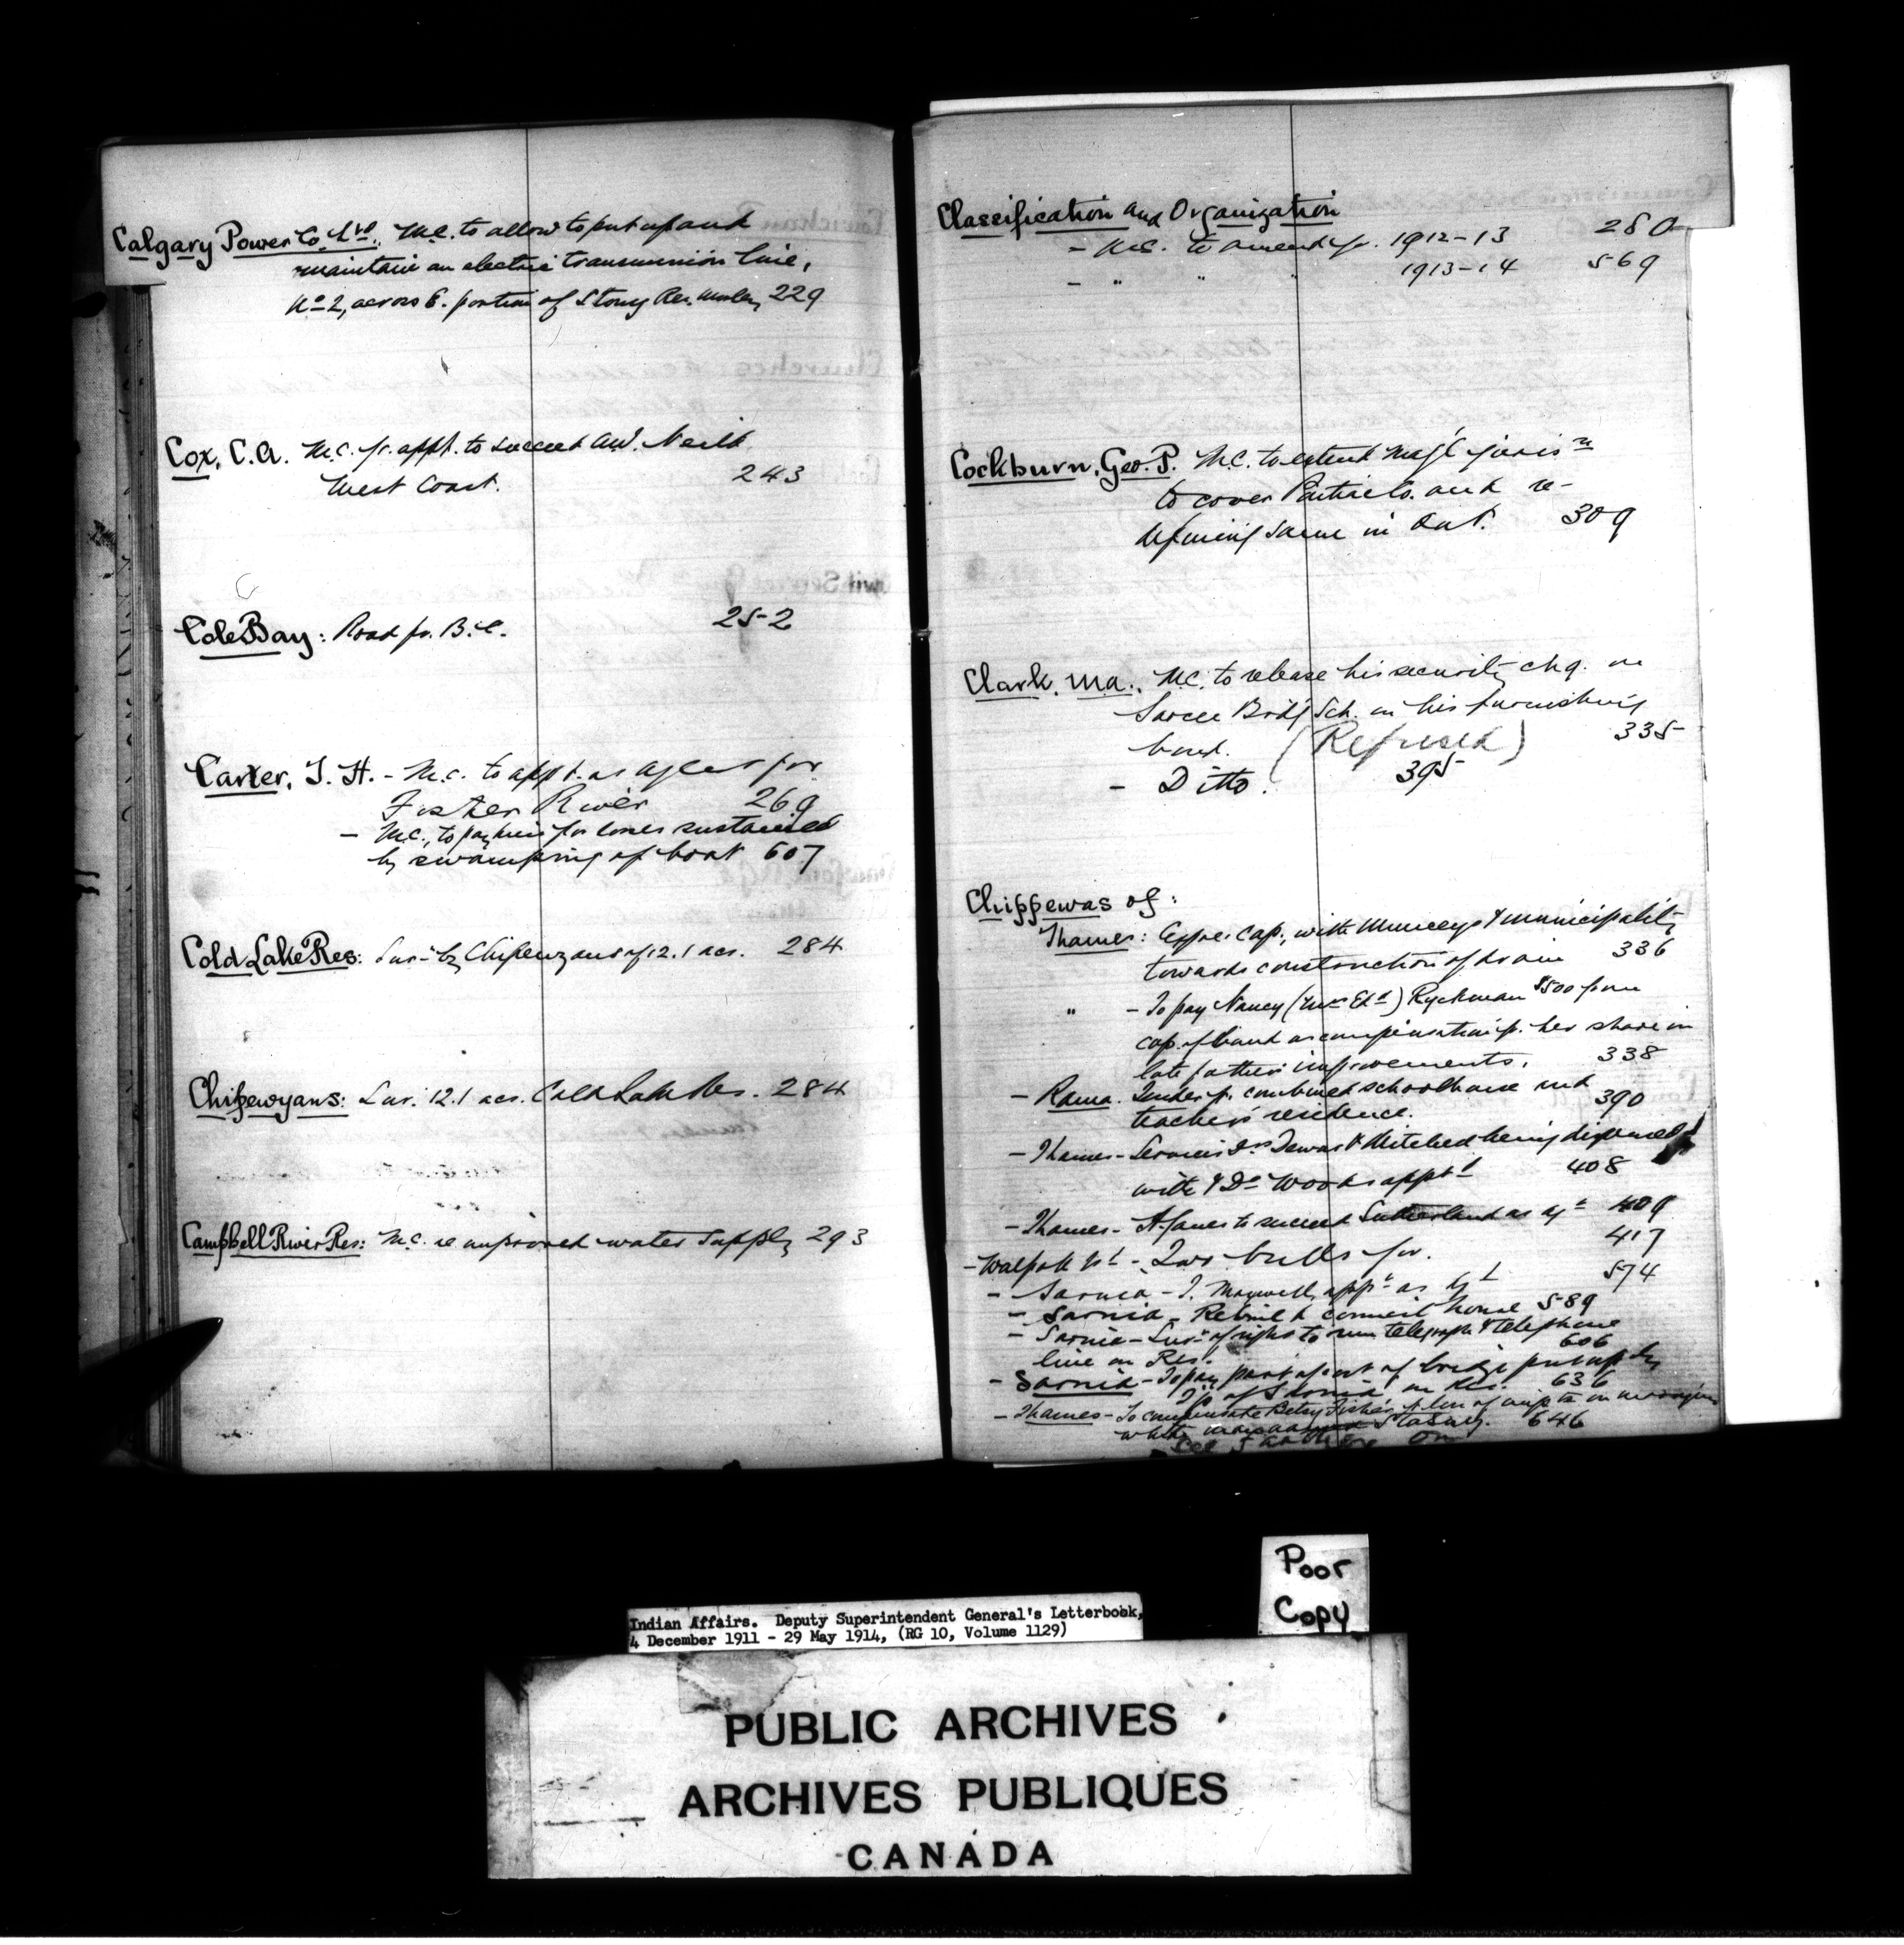 Calgary Power Co. Ltd., M.C. to allow to put up and
maintain an electric transmission line,
No 2, across E. portion of Stony Res. Morley 229
Cox, C.A. M.C. fr. appt. to succeed A.W. Neill
West Coast. 243
Cole Bay: Road fr. B.C. 252
Carter, T. H. - M.C. to appt. as agent for
Foster River 269
- M.C., to pay him for losses sustained
by swamping of boat 607
Cold Lake Res: Sur. by Chipewyans of 12.1 acs. 284
Chipewyans: Sur. 12.1 acs. Cold Lake Res. 284
Campbell River Res: M.C. re improved water supply 293
Classification and Organization
- M.C. to amend fr. 1912-13 280
- " " 1913-14 569
Cockburn, Geo. P. M.C. to extend Mag'l juris n
to cover and re-
defining same in Ont. 309
Clark, M.A., M.C. to release his security chq. on
Sarcee Bdg Sch. on his furnishing
bond. (Refused) 335
- Ditto. 395
Chippewas of:
Thames: Expre. Cap., with Munceys & municipality
towards construction of drain 336
" - To pay Nancy (Mrs Ed) Ryckman $500 from
cap. of band as compensation fr. her share in
late father's improvements. 338
- Rama. Tender fr. combined schoolhouse and
teacher's residence. 390
- Thames - Services Drs & Mitchell being dispensed
with & Dr Woods appt d 408
- Thames - to succeed Sutherland as agt 409
- Walpole Isl - Two bulls for. 417
- Sarnia - T. Maxwell, appt as agt 574
- Sarnia - Rebuild council house 589
- Sarnia - Sur. of right to run telegraph & telephone
line on Res. 606
- Sarnia - To pay part of cost of bridge put up by
Tp. of Sarnia on Res. 636
- Thames - To compensate Betsy Fisher fr. loss of on marrying
white man 646
See further on
Poor
Copy
Indian Affairs. Deputy Superintendent General's Letterbook,
4 December 1911 - 29 May 1914, (RG 10, Volume 1129)
PUBLIC ARCHIVES
ARCHIVES PUBLIQUES
CANADA